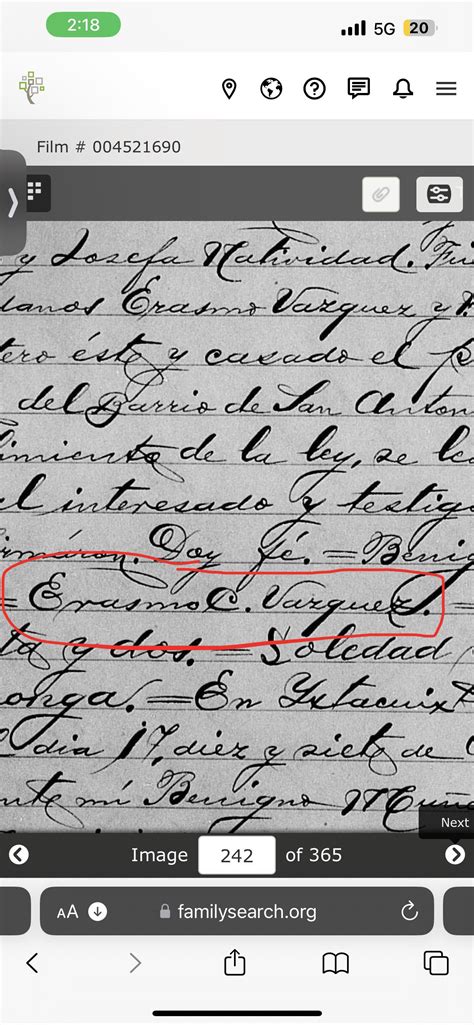 2:18 5G 20
Film # 004521690
y Josefa Natividad. Fue
danos Erasmo Vazquez y
tero éste y casado el
del Barrio de San Anton
imiento de la ley, se le
el interesado y testig
rmaron. Doy fé. = Benig
= Erasmo C. Vazquez. =
ta y dos. = Soledad
onga. = En Yxtacuixt
dia 17, diez y siete de
nte mí Benigno
Next
Image 242 of 365
AA familysearch.org